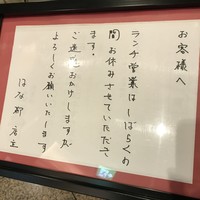 お客様へ
ランチ営業はしばらくの
間お休みさせていただき
ます。
ご迷惑おかけしますが
よろしくお願いいたします
はな耶 店主